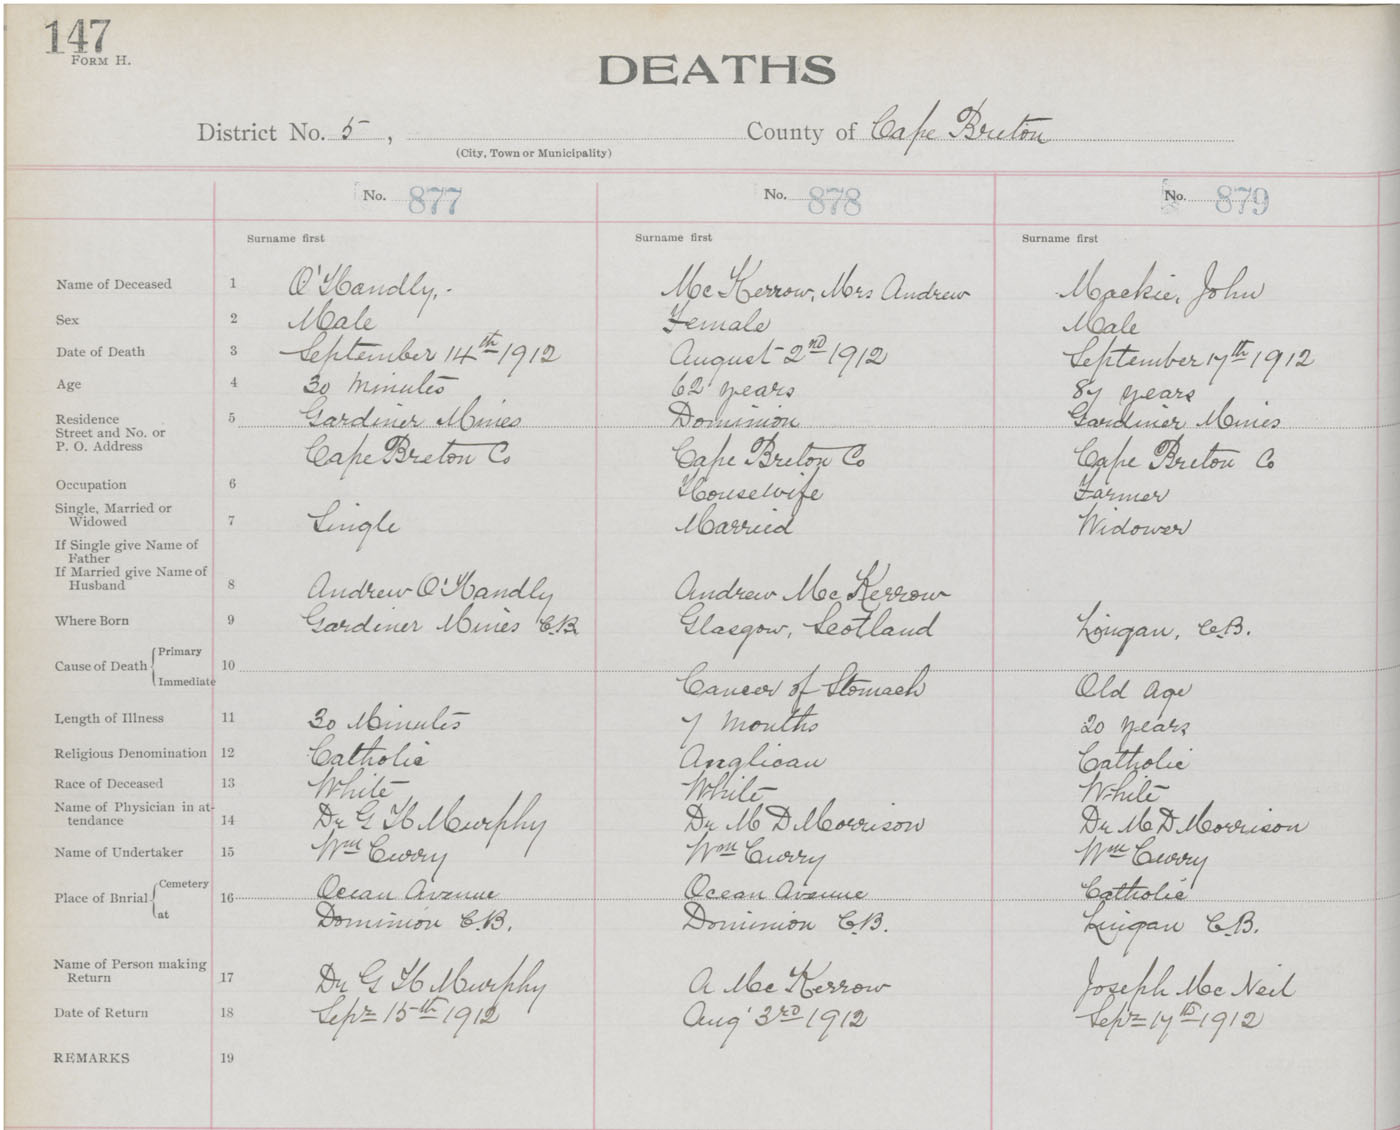 147
FORM H.
DEATHS
District No. 5, County of Cape Breton
(City, Town or Municipality)
No. 877 No. 878 No. 879
Surname first Surname first Surname first
Name of Deceased 1 O'Handly, - McKerrow, Mrs Andrew Mackie, John
Sex 2 Male Female Male
Date of Death 3 September 14th 1912 August 2nd 1912 September 17th 1912
Age 4 30 minutes 62 years 87 years
Residence 5 Gardiner Mines Dominion Gardiner Mines
Street and No. or
P. O. Address Cape Breton Co Cape Breton Co Cape Breton Co
Occupation 6 Housewife Farmer
Single, Married or
Widowed 7 Single Married Widower
If Single give Name of
Father
If Married give Name of
Husband 8 Andrew O'Handly Andrew McKerrow
Where Born 9 Gardiner Mines C.B. Glasgow, Scotland Lingan, C.B.
Cause of Death Primary 10
Immediate Cancer of Stomach Old Age
Length of Illness 11 30 Minutes 7 Months 20 years
Religious Denomination 12 Catholic Anglican Catholic
Race of Deceased 13 White White White
Name of Physician in at-
tendance 14 Dr G H Murphy Dr M D Morrison Dr M D Morrison
Name of Undertaker 15 Wm Curry Wm Curry Wm Curry
Place of Bnrial Cemetery 16 Ocean Avenue Ocean Avenue Catholic
at Dominion C.B. Dominion C.B. Lingan C.B.
Name of Person making
Return 17 Dr G H Murphy A McKerrow Joseph McNeil
Date of Return 18 Sepr 15th 1912 Aug' 3rd 1912 Sepr 17th 1912
REMARKS 19